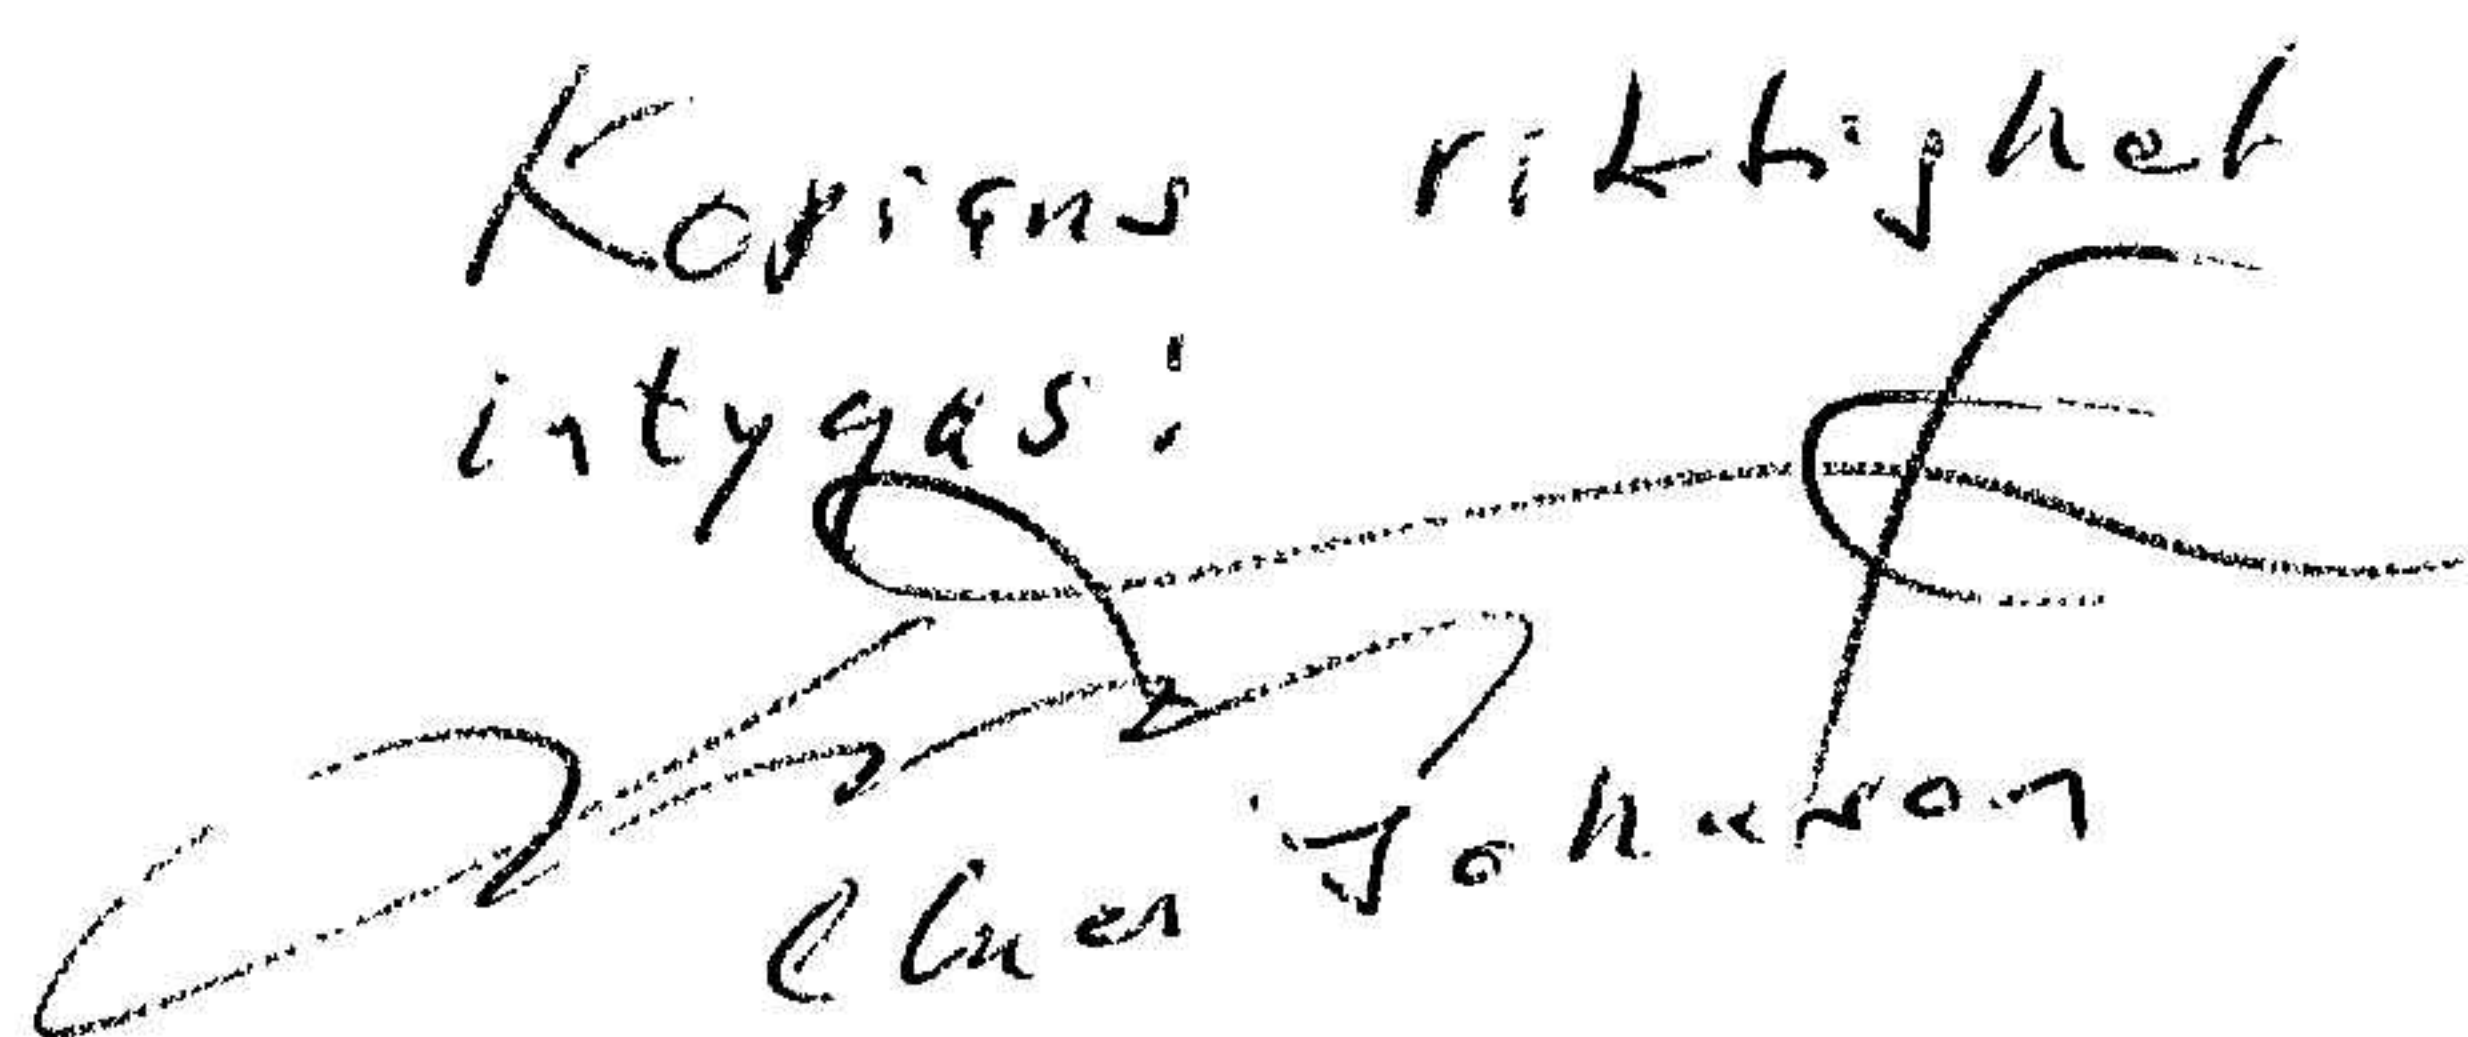 Kopians riktighet
intygas:
Johanson